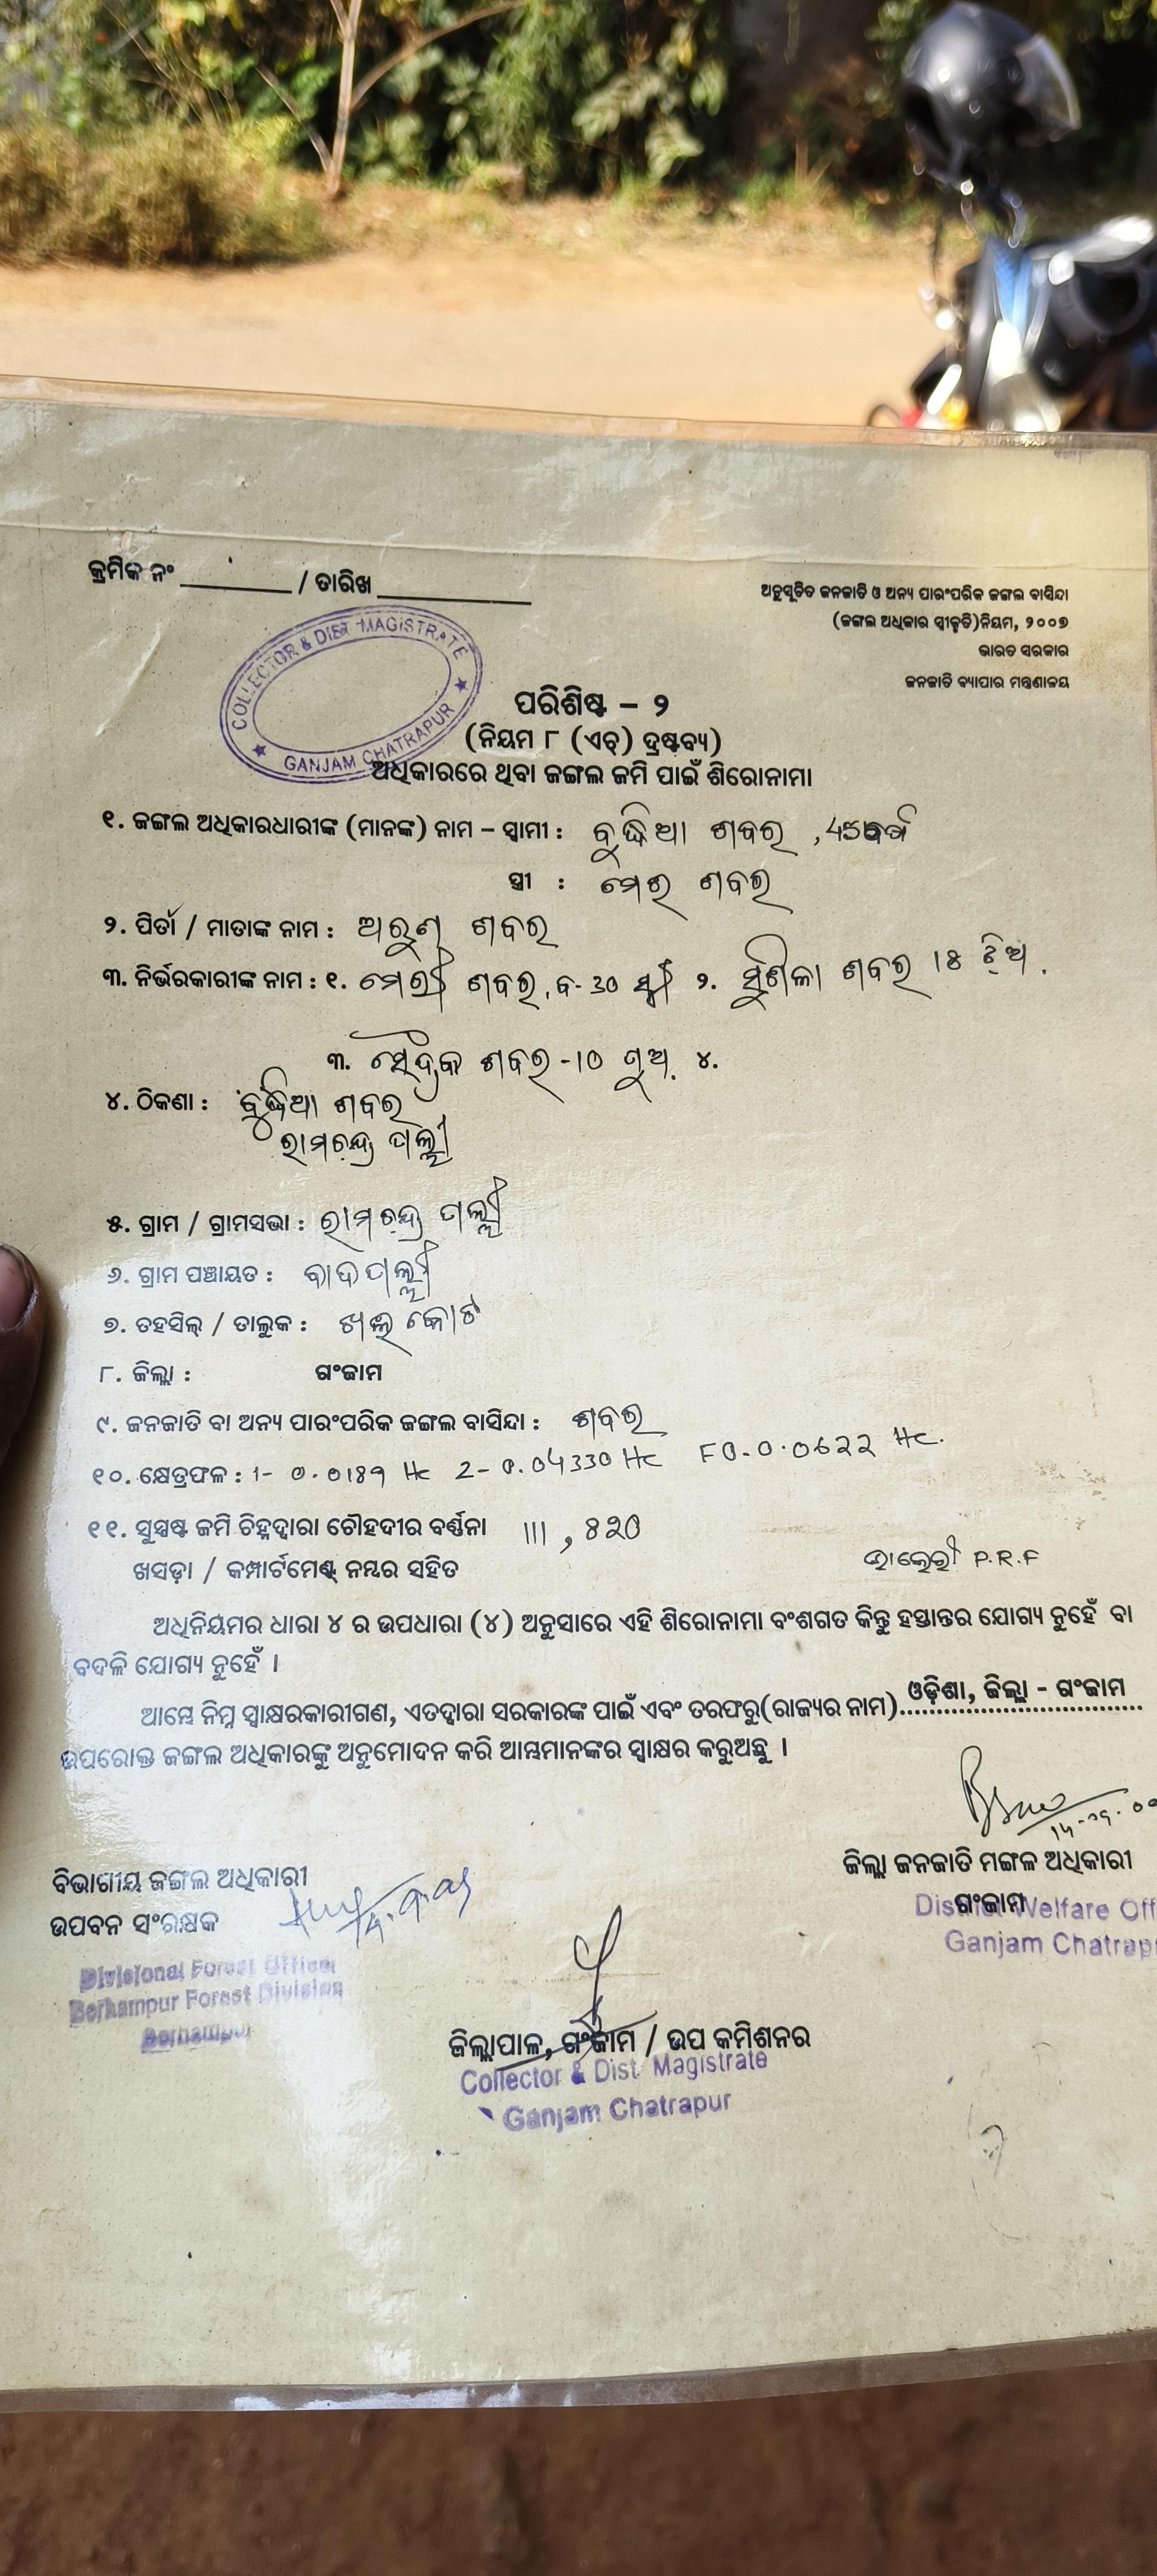 କ୍ରମିକ ନଂ ________ / ତାରିଖ ____________
ଅନୁସୂଚିତ ଜନଜାତି ଓ ଅନ୍ୟ ପାରଂପରିକ ଜଙ୍ଗଲ ବାସିନ୍ଦା
(ଜଙ୍ଗଲ ଅଧିକାର ସ୍ୱୀକୃତି)ନିୟମ, ୨୦୦୭
ଭାରତ ସରକାର
ଜନଜାତି ବ୍ୟାପାର ମନ୍ତ୍ରଣାଳୟ
COLLECTOR & DIST MAGISTRATE
★ GANJAM CHATRAPUR ★
ପରିଶିଷ୍ଟ – ୨
(ନିୟମ ୮ (ଏଚ୍) ଦ୍ରଷ୍ଟବ୍ୟ)
ଅଧିକାରରେ ଥିବା ଜଙ୍ଗଲ ଜମି ପାଇଁ ଶିରୋନାମା
୧. ଜଙ୍ଗଲ ଅଧିକାରଧାରୀଙ୍କ (ମାନଙ୍କ) ନାମ – ସ୍ୱାମୀ : ବୁଦ୍ଧିଆ ଶବର
ସ୍ତ୍ରୀ : ମେରି ଶବର
୨. ପିତା / ମାତାଙ୍କ ନାମ : ଅରୁଣ ଶବର
୩. ନିର୍ଭରକାରୀଙ୍କ ନାମ : ୧. ମେରୀ ଶବର, ବ- 30 ସ୍ତ୍ରୀ ୨. ସୁଶିଳା ଶବର 18 ଝିଅ.
୩. ଶବର -10 ପୁଅ. ୪.
୪. ଠିକଣା : ବୁଦ୍ଧିଆ ଶବର
ରାମଚନ୍ଦ୍ର ପଲ୍ଲୀ
୫. ଗ୍ରାମ / ଗ୍ରାମସଭା : ରାମଚନ୍ଦ୍ର ପଲ୍ଲୀ
୬. ଗ୍ରାମ ପଞ୍ଚାୟତ : ବାଦପଲ୍ଲୀ
୭. ତହସିଲ୍ / ତାଲୁକ : ଖଲିକୋଟ
୮. ଜିଲ୍ଲା : ଗଂଜାମ
୯. ଜନଜାତି ବା ଅନ୍ୟ ପାରଂପରିକ ଜଙ୍ଗଲ ବାସିନ୍ଦା : ଶବର
୧୦. କ୍ଷେତ୍ରଫଳ : 1- 0.0189 Hc 2- 0.04330 Hc 0.0622 Hc.
୧୧. ସୁସ୍ପଷ୍ଟ ଜମି ଚିହ୍ନଦ୍ୱାରା ଚୌହଦୀର ବର୍ଣ୍ଣନା 111, 820
ଖସଡ଼ା / କମ୍ପାର୍ଟମେଣ୍ଟ ନମ୍ବର ସହିତ P.R.F
ଅଧିନିୟମର ଧାରା ୪ ର ଉପଧାରା (୪) ଅନୁସାରେ ଏହି ଶିରୋନାମା ବଂଶଗତ କିନ୍ତୁ ହସ୍ତାନ୍ତର ଯୋଗ୍ୟ ନୁହେଁ ବା
ବଦଳି ଯୋଗ୍ୟ ନୁହେଁ ।
ଆମ୍ଭେ ନିମ୍ନ ସ୍ୱାକ୍ଷରକାରୀଗଣ, ଏତଦ୍ୱାରା ସରକାରଙ୍କ ପାଇଁ ଏବଂ ତରଫରୁ(ରାଜ୍ୟର ନାମ)ଓଡ଼ିଶା, ଜିଲ୍ଲା - ଗଂଜାମ
ଉପରୋକ୍ତ ଜଙ୍ଗଲ ଅଧିକାରକୁ ଅନୁମୋଦନ କରି ଆମ୍ଭମାନଙ୍କର ସ୍ୱାକ୍ଷର କରୁଅଛୁ ।
ଜିଲ୍ଲା ଜନଜାତି ମଙ୍ଗଳ ଅଧିକାରୀ
ଗଂଜାମ
District Welfare Off
Ganjam Chatrap
ବିଭାଗୀୟ ଜଙ୍ଗଲ ଅଧିକାରୀ
ଉପବନ ସଂରକ୍ଷକ
Divisional Forest Officer
Berhampur Forest Division
Berhampur
ଜିଲ୍ଲାପାଳ, ଗଂଜାମ / ଉପ କମିଶନର
Collector & Dist. Magistrate
Ganjam Chatrapur